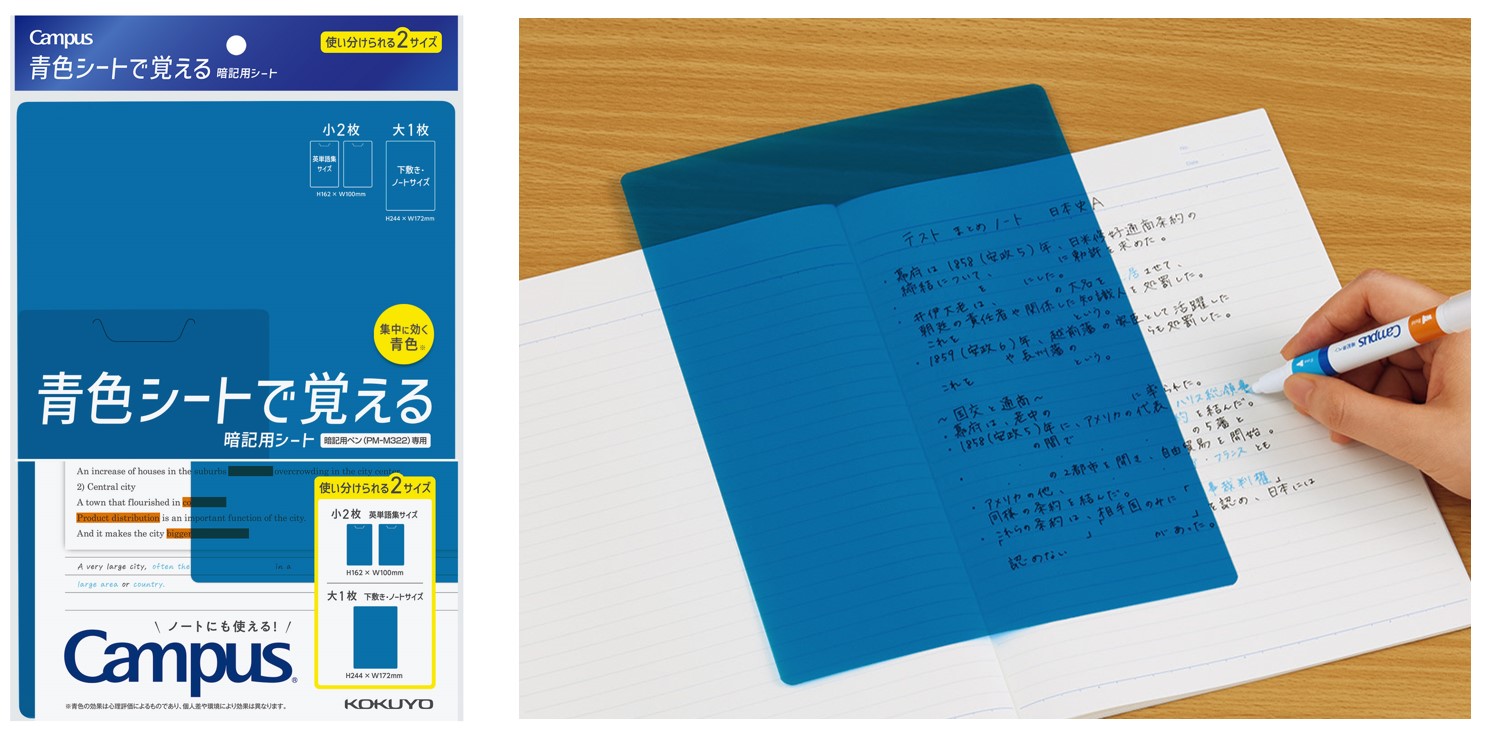 Campus
青色シートで覚える 暗記用シート
使い分けられる2サイズ
小2枚 大1枚
英単語集サイズ
下敷き・ノートサイズ
H162 × W100mm
H244 × W172mm
集中に効く青色※
青色シートで覚える
暗記用シート 暗記用ペン(PM-M322)専用
An increase of houses in the suburbs overcrowding in the city center.
2) Central city
A town that flourished in co
Product distribution is an important function of the city.
And it makes the city bigger
A very large city, often the in a
large area or country.
使い分けられる2サイズ
小2枚 英単語集サイズ
H162 × W100mm
大1枚 下敷き・ノートサイズ
H244 × W172mm
\ ノートにも使える! /
Campus®
※青色の効果は心理評価によるものであり、個人差や環境により効果は異なります。
KOKUYO
テスト まとめノート 日本史A
・幕府は 1858 (安政5) 年、日米修好通商条約の
締結について、 に勅許を求めた。
・井伊大老は、 の大名を 居させて、
朝廷の責任者や関係した知識人を処罰した。
これを という。
・1859 (安政6) 年、越前藩の家臣として活躍した
や長州藩の らも処罰した。
これを という。
〜国交と通商〜
・幕府は、老中の に率られた。
・1858 (安政5) 年に、アメリカの代表 ハリス総領事
の間で 約 を結んだ。
の2都市を開き、自由貿易を開始。
・アメリカの他、 の5藩と
・フランス とも
同様の条約を結んだ。
・これらの条約は、相手国のみに「 事裁判権」
を認め、日本には
認めない があった。
Campus 暗記用ペン